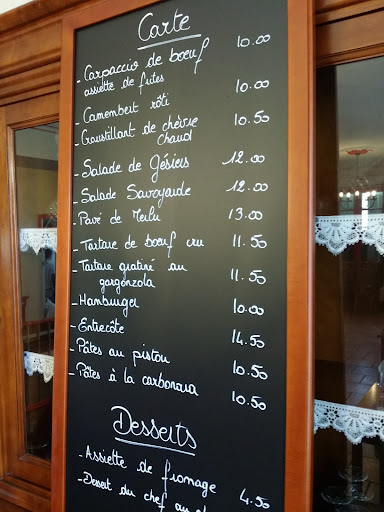 Carte
- Carpaccio de bœuf 10.00
assiette de frites
- Camembert rôti 10.00
- Croustillant de chèvre 10.50
chaud
- Salade de Gésiers 12.00
- Salade Savoyarde 12.00
- Pavé de Merlu 13.00
- Tartare de bœuf cru 11.50
- Tartare gratiné au 11.50
gorgonzola
- Hamburger 10.00
- Entrecôte 14.50
- Pâtes au pistou 10.50
- Pâtes à la carbonara 10.50
Desserts
- Assiette de fromage 4.50
- Dessert du chef au